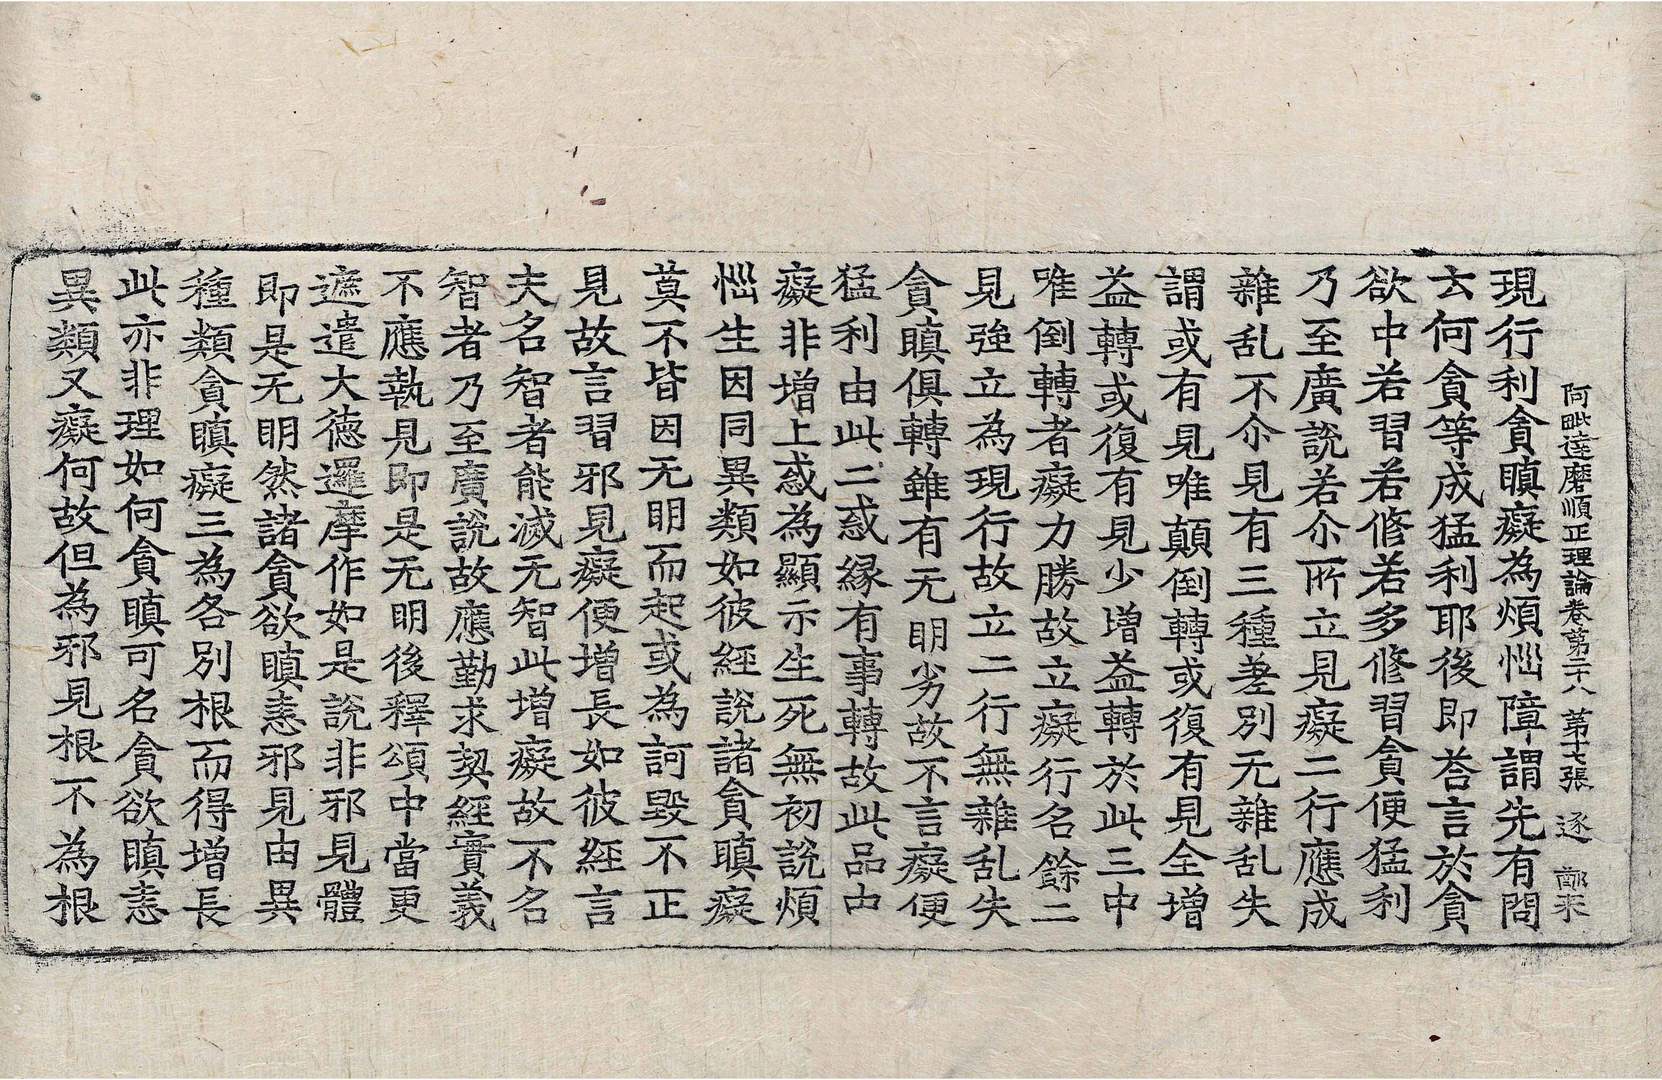 阿毗達磨順正理論卷第二十八 第十七張 逐 鄭来
現行利貪瞋癡為煩惱障謂先有問
云何貪等成猛利耶後即荅言於貪
欲中若習若修若多修習貪便猛利
乃至廣說若尒所立見癡二行應成
雜乱不尒見有三種差別无雜乱失
謂或有見唯顛倒轉或復有見全增
益轉或復有見少增益轉於此三中
唯倒轉者癡力勝故立癡行名餘二
見強立為現行故立二行無雜乱失
貪瞋俱轉雖有无明劣故不言癡便
猛利由此二惑緣有事轉故此品由
癡非增上惑為顯示生死無初說煩
惱生因同異類如彼經說諸貪瞋癡
莫不皆因无明而起或為訶毀不正
見故言習邪見癡便增長如彼經言
夫名智者能滅无智此增癡故不名
智者乃至廣說故應勤求契經實義
不應執見即是无明後釋頌中當更
遮遣大德邏摩作如是說非邪見體
即是无明然諸貪欲瞋恚邪見由異
種類貪瞋癡三為各別根而得增長
此亦非理如何貪瞋可名貪欲瞋恚
異類又癡何故但為邪見根不為根